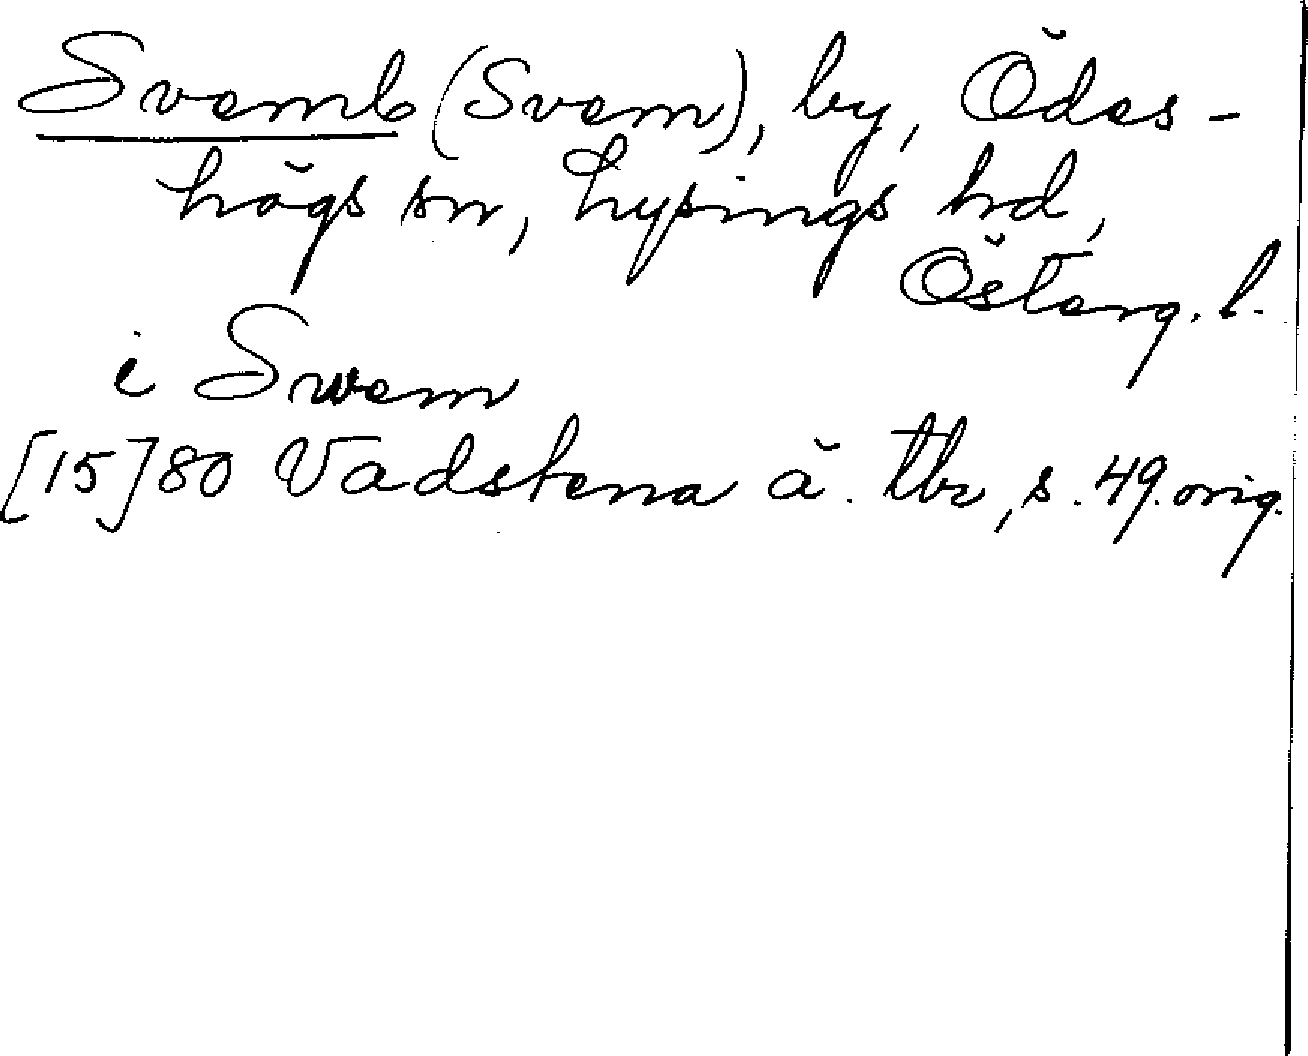 Svemb (Svem), by, Ödes-
högs sn, Lysings hd,
Österg. l.
i Swem
[15]80 Vadstena ä. tbr, s. 49. orig.